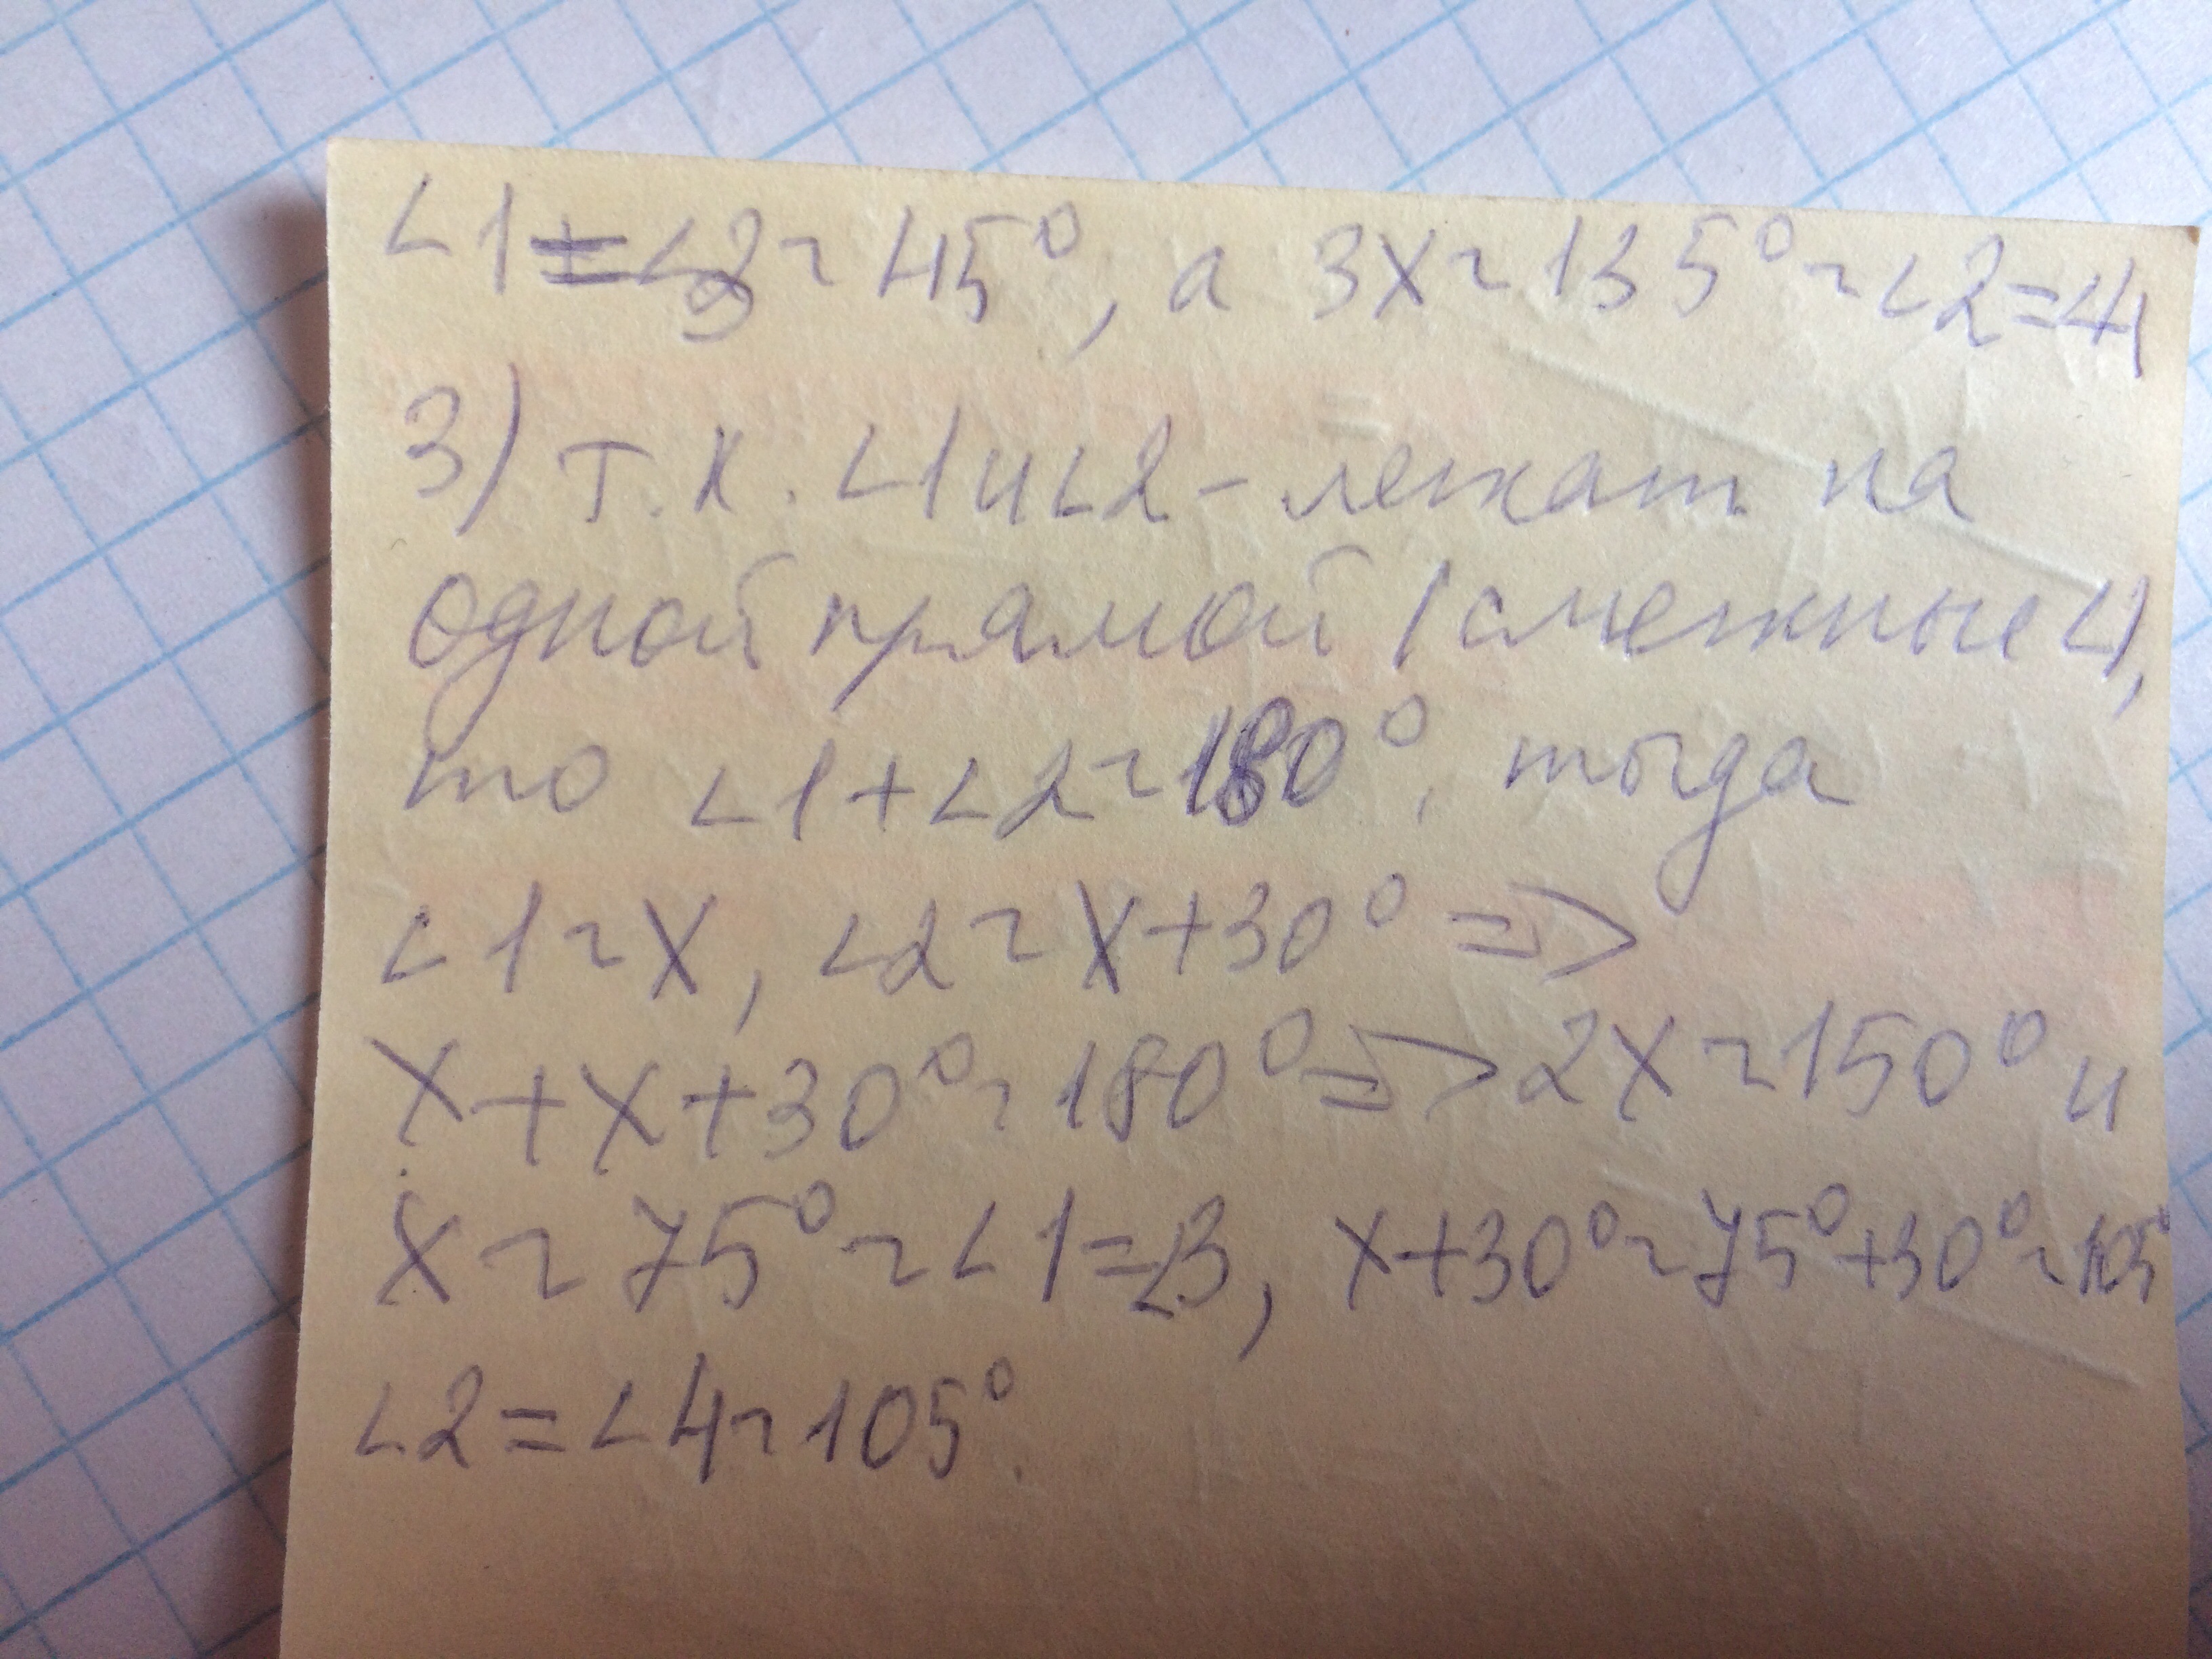 ∠1=∠3=45°, а 3x=135°=∠2=∠4
3) т.к. ∠1и∠2-лежат на
одной прямой (смежные∠),
то ∠1+∠2=180°, тогда
∠1=x, ∠2=x+30° =>
x+x+30°=180°=>2x=150° и
x=75°=∠1=∠3, x+30°=75°+30°=105°
∠2=∠4=105°.